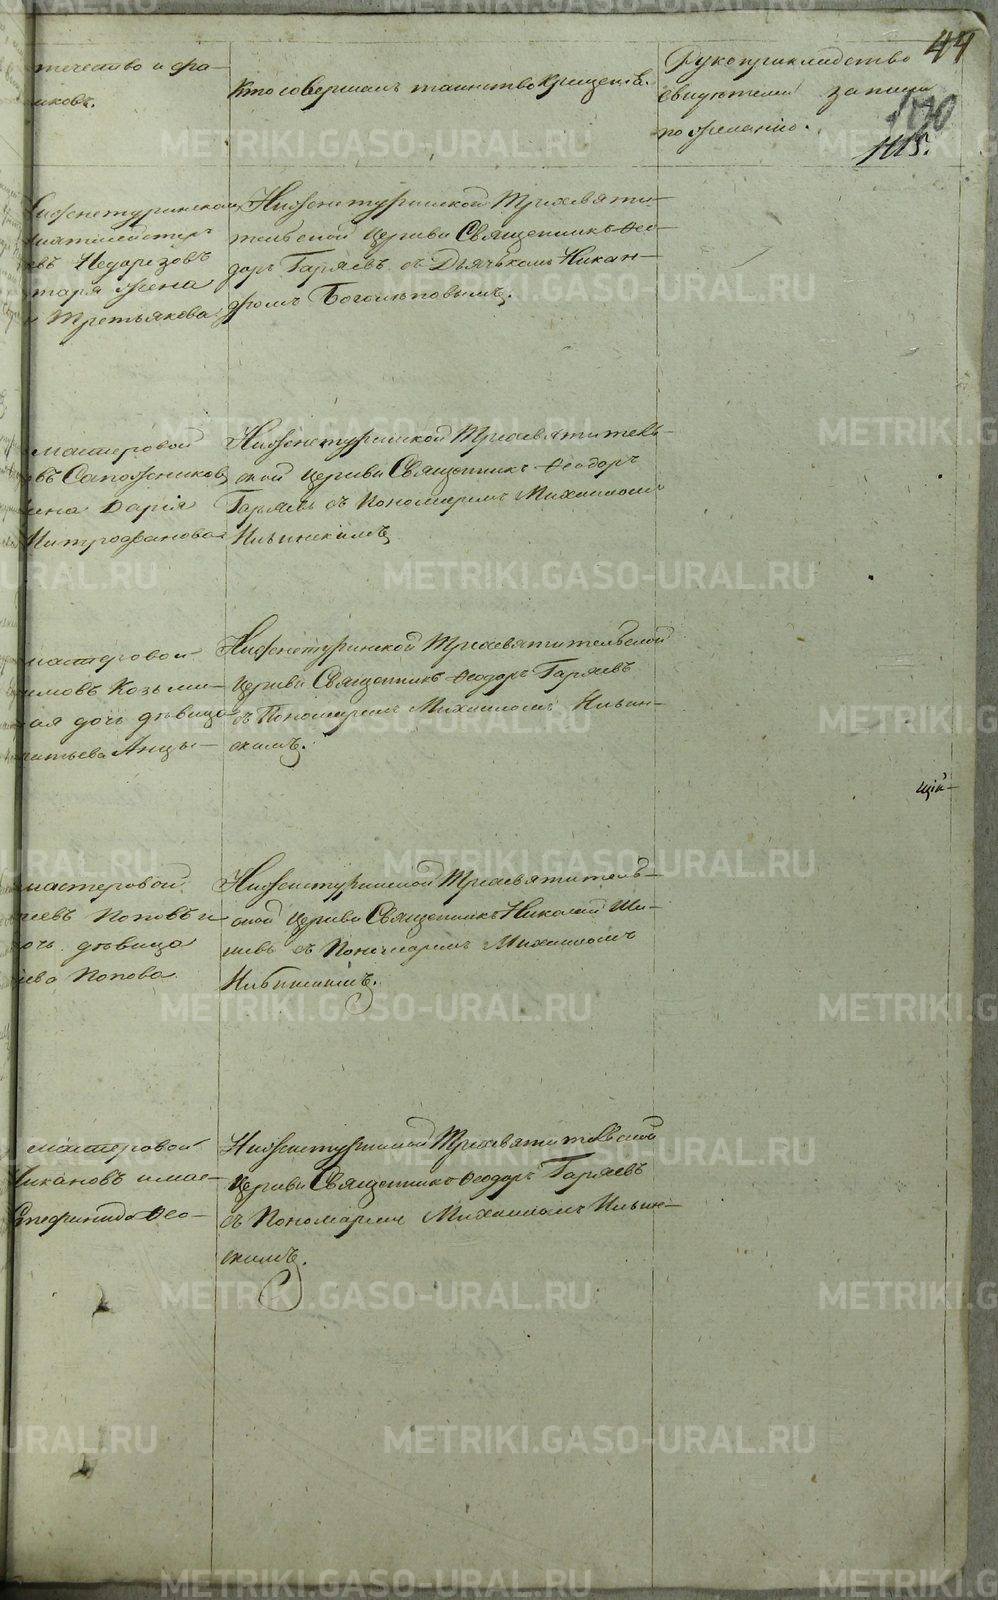 44
100
1115.
течество и фа-
никовъ.
Кто совершалъ таинство крещенія.
Рукоприкладство
свидетелей записи
по желанію.
Нижнетуринской
Недорезовъ
жена
Третьякова
Нижнетуринской Трехсвяти-
тельской Церкви Священникъ Ѳео-
доръ Гаряевъ съ Дьячкомъ Никан-
дромъ Боголѣповымъ.
мастеровой
въ Сапожников
Дарія
Митрофанова
Нижнетуринской Трехсвятитель-
ской Церкви Священникъ Ѳеодоръ
Гаряевъ съ Пономаремъ Михаиломъ
Ильинскимъ
мастеровой
имовъ Козьми-
ная дочь дѣвица
Анцы-
Нижнетуринской Трехсвятительской
Церкви Священникъ Ѳеодоръ Гаряевъ
съ Пономаремъ Михаиломъ Ильин-
скимъ.
щій-
мастеровой
еевъ Поповъ и
очь дѣвица
ева Попова
Нижнетуринской Трехсвятитель-
ской Церкви Священникъ Николай Ши-
съ Пономаремъ Михаиломъ
Ильинскимъ.
мастеровой
икановъ и мас-
Стефанида Ѳео-
Нижнетуринской Трехсвятительской
Церкви Священникъ Ѳеодоръ Гаряевъ
съ Пономаремъ Михаиломъ Ильин-
скимъ.
METRIKI.GASO-URAL.RU